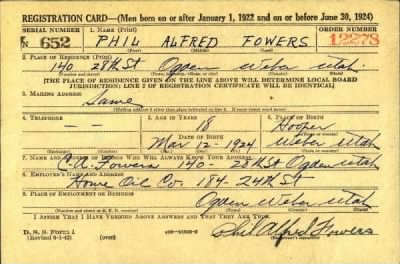 REGISTRATION CARD—(Men born on or after January 1, 1922 and on or before June 30, 1924)
SERIAL NUMBER 1. NAME (Print) ORDER NUMBER
N 652 PHIL ALFRED FOWERS 12278
(First) (Middle) (Last)
2. PLACE OF RESIDENCE (Print)
140 28th St Ogden Weber Utah
(Number and street) (Town, township, village, or city) (County) (State)
[THE PLACE OF RESIDENCE GIVEN ON THE LINE ABOVE WILL DETERMINE LOCAL BOARD
JURISDICTION; LINE 2 OF REGISTRATION CERTIFICATE WILL BE IDENTICAL]
3. MAILING ADDRESS
Same
4. TELEPHONE 5. AGE IN YEARS 6. PLACE OF BIRTH
— — 18 Hooper
DATE OF BIRTH
Mar 12-1924 Weber Utah
7. NAME AND ADDRESS OF PERSON WHO WILL ALWAYS KNOW YOUR ADDRESS
C.A. Fowers 140-28th St Ogden Utah
8. EMPLOYER'S NAME AND ADDRESS
Home Oil Co. 184-24th St
9. PLACE OF EMPLOYMENT OR BUSINESS
Ogden Weber Utah
(Number and street or R. F. D. number) (Town) (County) (State)
I AFFIRM THAT I HAVE VERIFIED ABOVE ANSWERS AND THAT THEY ARE TRUE.
D. S. S. Form 1
(Revised 6-1-42) (over) Phil Alfred Fowers
(Registrant's signature)